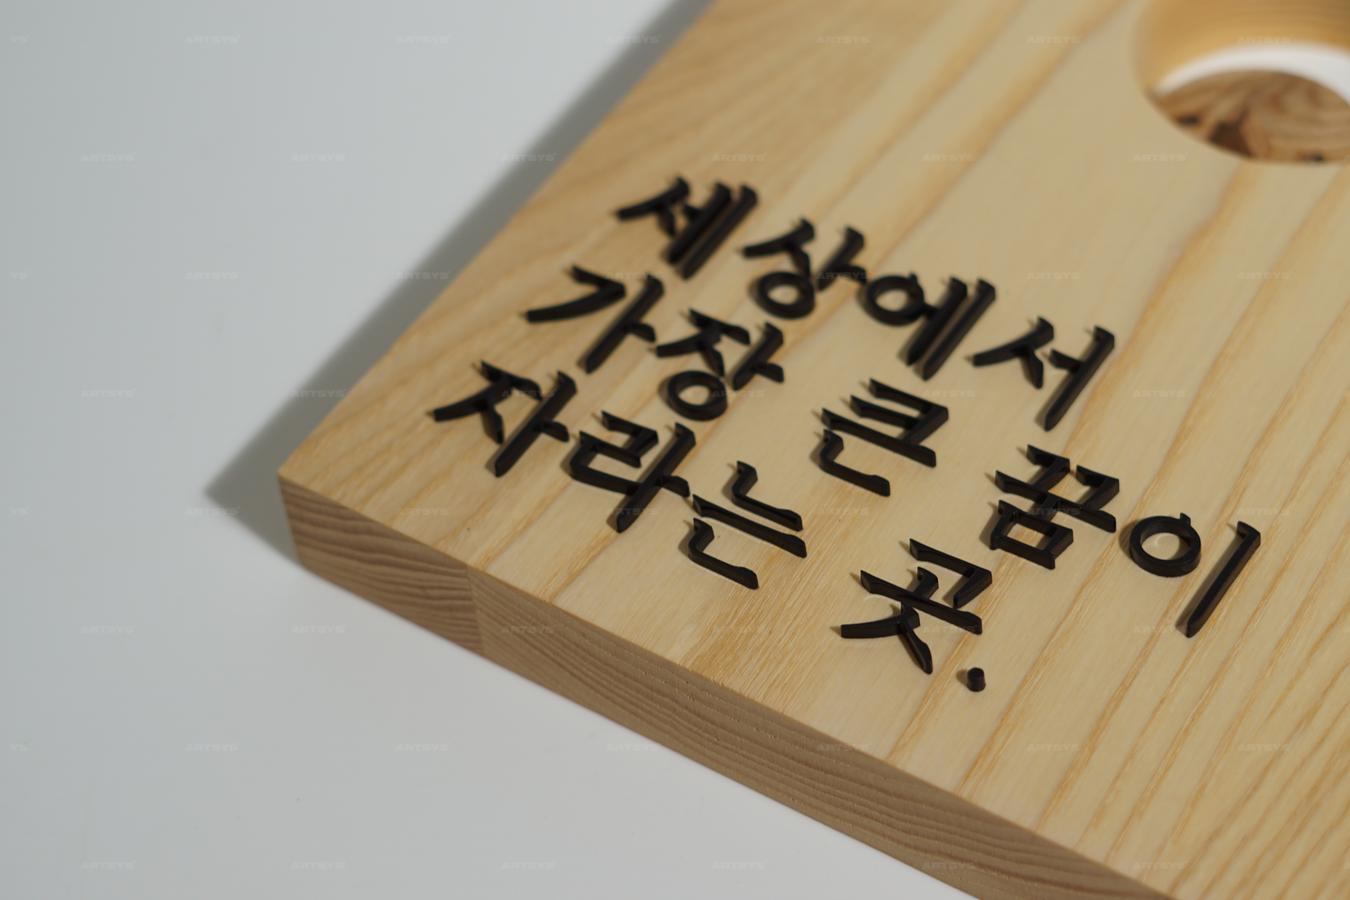 세상에서
가장 큰 꿈이
자라는 곳.
ARTSYS